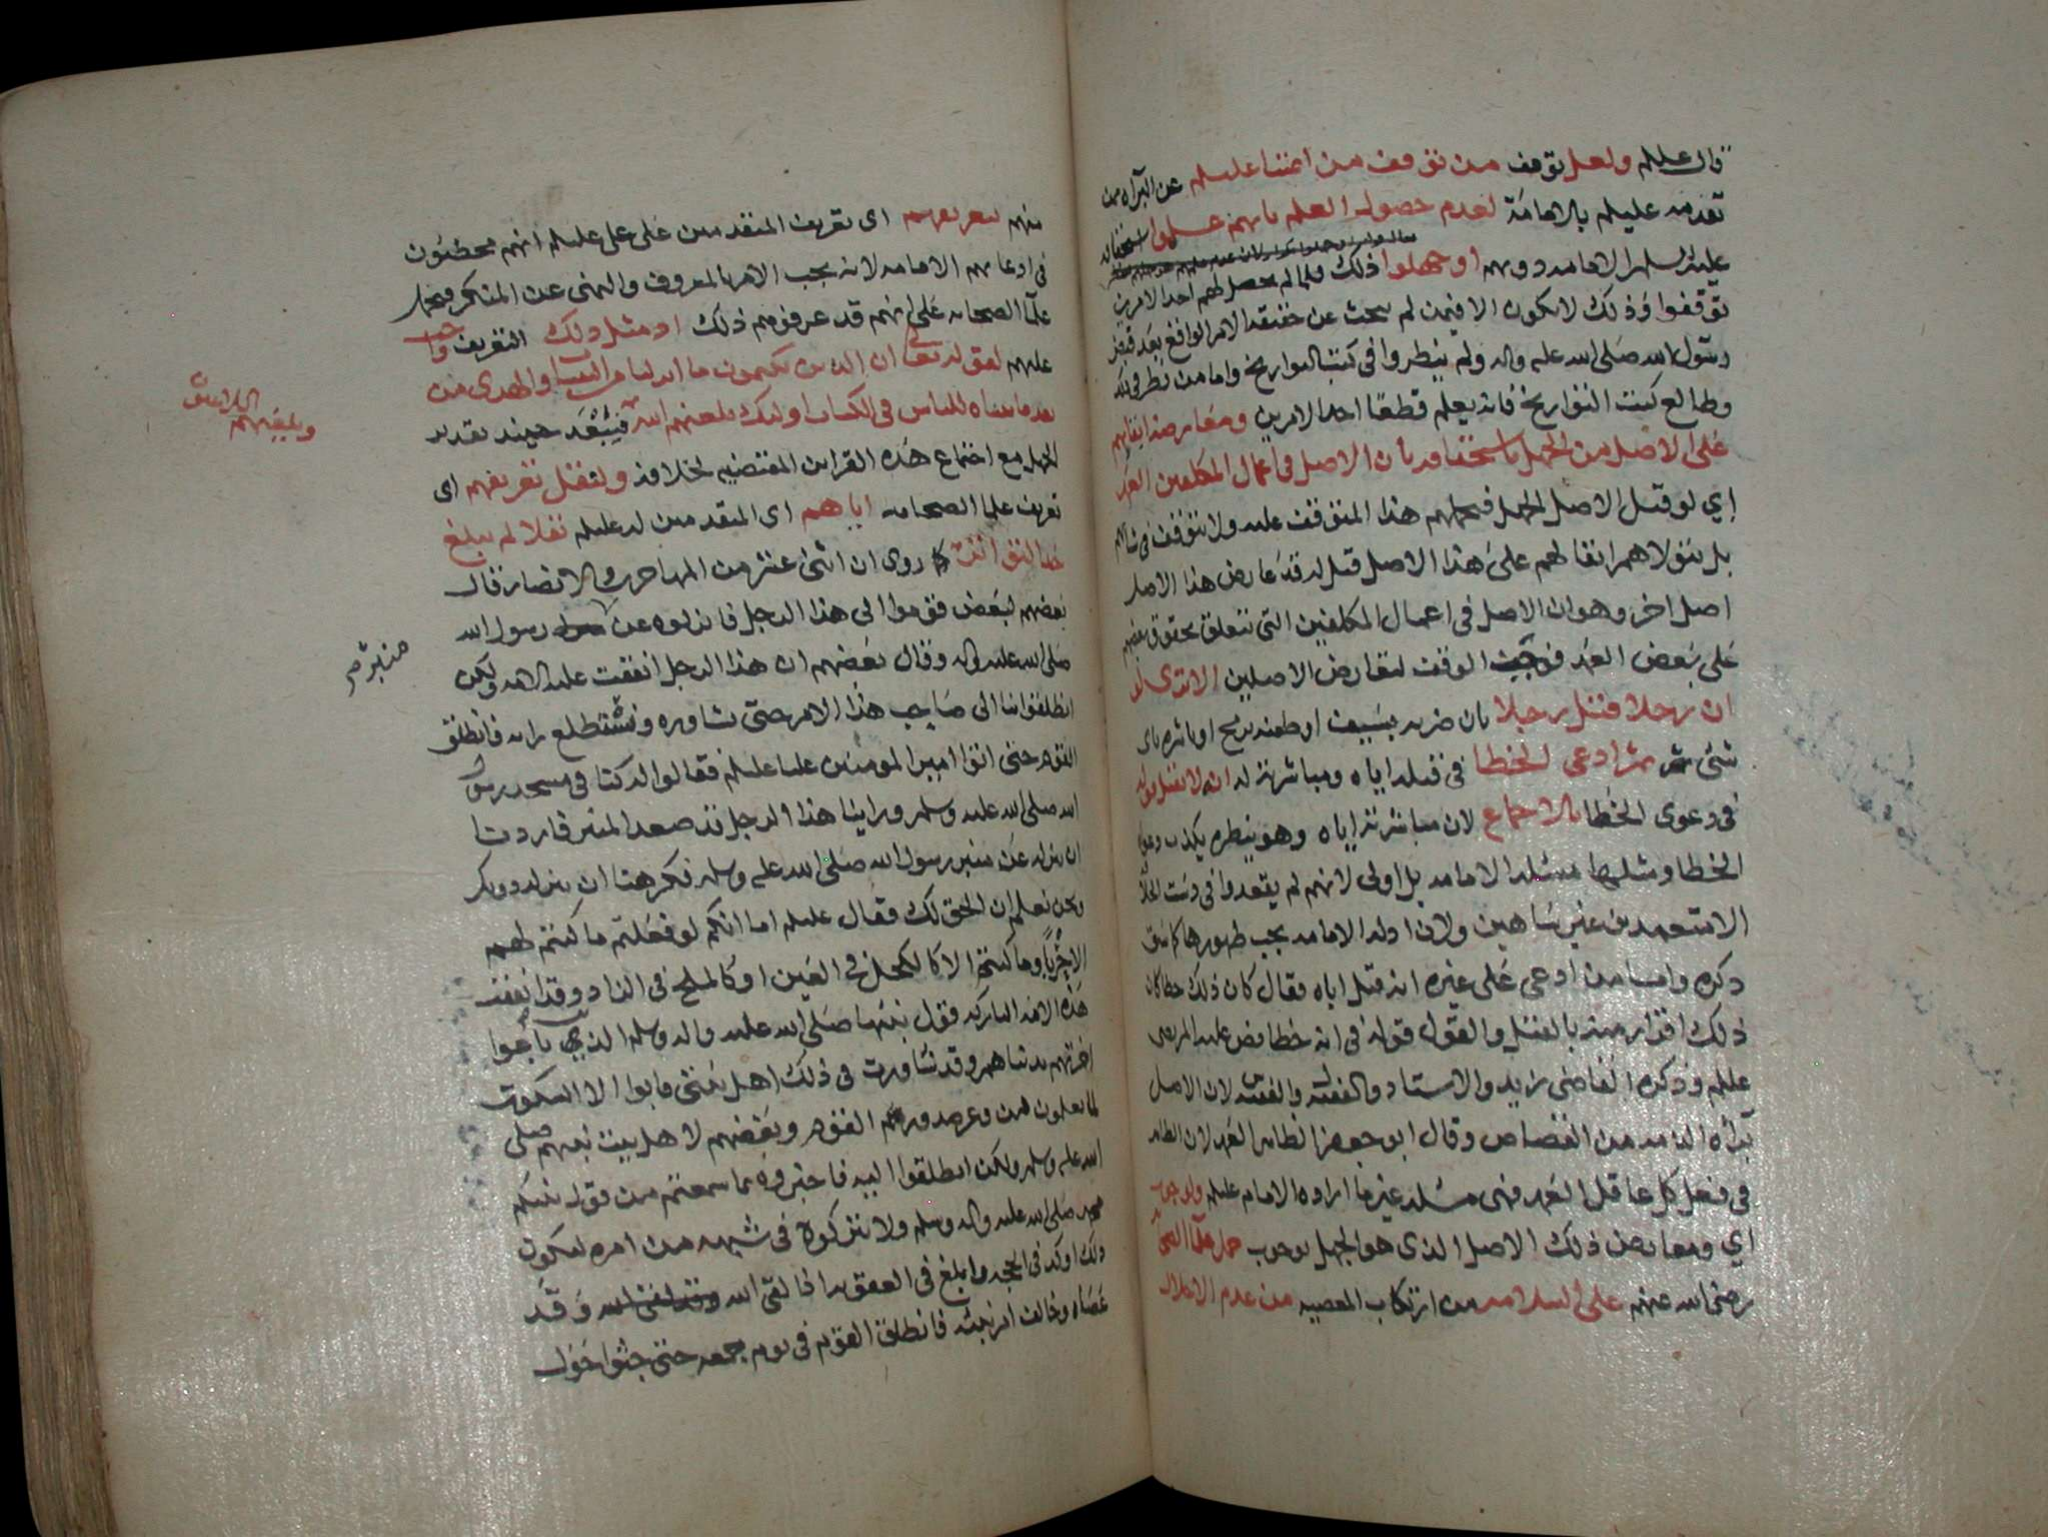 قال عليلم ولعل توقف من توقف من ائمتنا عليلم عن البرآه ممن
تقدمه عليلم بالامامة لعدم حصول العلم بانهم علموا استحقاقه
عليه السلم الامامه دونهم او جهلوا ذلك فلما لم يحصل لهم احد الامرين
توقفوا وذلك لا يكون الا فيمن لم يبحث عن حقيقه الامر الواقع بعد قبض
رسول الله صلى الله عليه واله ولم ينظروا في كتب التواريخ واما من نظر في ذلك
وطالع كتب التواريخ فانه يعلم قطعًا احد الامرين ومعارضه ابقايهم
على الاصل من الجهل باستحقاقه بأن الاصل في اعمال المكلفين العمد
اي لو قيل الاصل الجهل هذا المتوقف عليه ولا يتوقف في شانهم
بل يتولاهم ابقا لهم على هذا الاصل قيل له قد عارض هذا الاصل
اصل اخر وهو ان الاصل في اعمال المكلفين التي تتعلق بحقوق بعضهم
على بعض العمد فوجب الوقف لتعارض الاصلين الا ترى لو
ان رجلا قتل رجلا بان ضربه بسيف او طعنه برمح او باشره باي
شي ثم ادعى الخطا في قتله اياه ومباشرته له انه لا يقبل قوله
في دعوى الخطا بالاجماع لان مباشرته اياه وهو ينظره يكذب دعوى
الخطا ومثلها مسئلة الامامه بل اولى لانهم لم يقعدوا في دست الخلافة
الا متعمدين غير ساهين ولان ادلة الامامه يجب ظهورها كما سبق
ذكره واما من ادعى على غيره انه قتل اباه فقال كان ذلك خطا كان
ذلك اقرار منه بالقتل والقول قوله في انه خطا نص عليه المرتضى
عليلم وذكره القاضي زيد والاستاد لان الاصل
برآة الذمه من القصاص وقال ابو جعفر الظاهر العمد لان الظاهر
في فعل كل عاقل العمد فهي مسئلة غير ما اراده الامام عليلم ولوجوب
اي ومعارض ذلك الاصل الذي هو الجهل بوجوب حمل علما الصحابة
رضي الله عنهم على السلامه من ارتكاب المعصيه من عدم الاخلال
منهم بتعريفهم اى تعريف المتقدمين على علي عليلم انهم مخطئون
في ادعايهم الامامه لانه يجب الامر بالمعروف والنهي عن المنكر فيحمل
علما الصحابه على انهم قد عرفوهم ذلك اذ مثل ذلك التعريف واجب
عليهم لقوله تعالى ان الذين يكتمون ما انزلنا من البينات والهدى من
بعد ما بيناه للناس في الكتاب اولئك يلعنهم الله فيبعد حينئذ تقدير
ويلعنهم اللاعنون
الجهل مع اجتماع هذه القراين المقتضيه لخلافه ولنقل تعريفهم اى
تعريف علما الصحابه اياهم اى المتقدمين له عليلم نقلا لم يبلغ
حد التواتر روى ان اثنى عشر من المهاجرين والانصار قال
بعضهم لبعض قوموا الى هذا الرجل فانزلوه عن رسول الله
منبر
صلى الله عليه واله وقال بعضهم ان هذا الرجل اتفقت عليه الامه ولكن
انطلقوا بنا الى صاحب هذا الامر حتى نشاوره ونستطلع رايه فانطلق
القوم حتى اتوا امير المومنين عليا عليلم فقالوا له كنا في مسجد رسول
الله صلى الله عليه وسلم وراينا هذا الرجل قد صعد المنبر فاردنا
ان ننزله عن منبر رسول الله صلى الله عليه وسلم فكرهنا ان ننزله دونك
ونحن نعلم ان الحق لك فقال عليلم اما انكم لو فعلتم ما كنتم لهم
الا حربا وما كنتم الا كالكحل في العين او كالملح في الزاد وقد اتفقت
هذه الامه التاركه قول نبيها صلى الله عليه واله وسلم الذين باعوا
اخرتهم بدنياهم وقد شاورت في ذلك اهل بيتي فابوا الا السكوت
لما يعلمون من وغر صدور القوم وبغضهم لاهل بيت نبيهم صلى
الله عليه وسلم ولكن انطلقوا اليه فاخبروه بما سمعتم من قول نبيكم
محمد صلى الله عليه واله وسلم ولا تتركوه في شبهه من امره ليكون
ذلك اوكد في الحجه وابلغ في العقوبه اذا لقي الله وقد
عصاه وخالف امر نبيه فانطلق القوم في يوم جمعه حتى جثوا حول